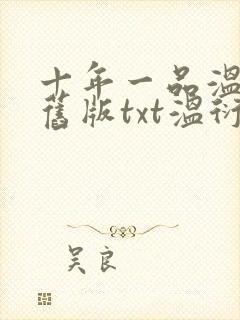 十年一品温
旧版txt温衍
吴良